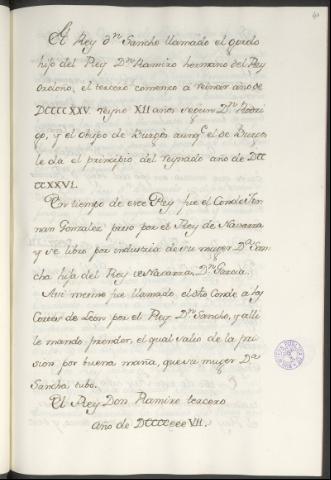 El Rey Dn Sancho llamado el gordo
hijo del Rey Dn Ramiro hermano del Rey
Ordoño, el tercero començo a reinar año de
DCCCCXXV. reyno XII años segun Dn Rodri
go, y el obispo de Burgos aunq̃ el de Burgos
le da el principio del reynado año de DCC
CCXXVI.
En tiempo de este Rey fue el Conde Fer
nan Gonzalez preso por el Rey de Navarra
y se libro por industria de su muger Da San
cha hija del Rey de Navarra Dn Garcia.
Asi mesmo fue llamado el dho Conde a las
Cortes de Leon por el Rey Dn Sancho, y alli
le mando prender, el qual salio de la pri
sion por buena maña, que su muger Da
Sancha tubo.
El Rey Don Ramiro tercero
año de DCCCCeee VII.